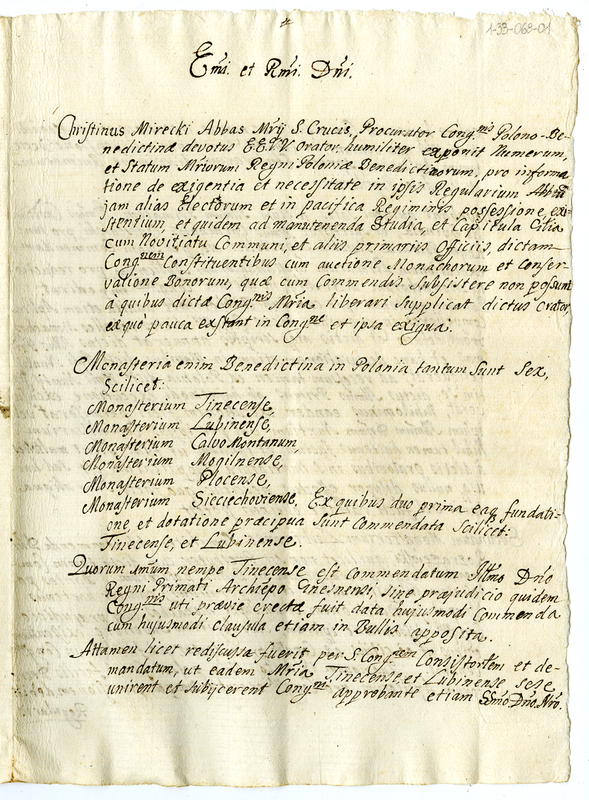 1-33-068-01
Emi. et Rmi. Dni.
Christinus Mirecki Abbas Mrij S. Crucis, Procurator Cong.nis Polono-Be-
nedictinæ devotus EE.VV. Orator, humiliter exponit Numerum,
et Statum Mriorum Regni Poloniæ Benedictinorum, pro informa
tione de exigentia et necessitate in ipsis Regularium Abbatũ
jam alias Electorum et in pacifica Regiminis possessione, exi-
stentium, et quidem ad manutenenda Studia, et Capitula Gñlia
cum Novitiatu Communi, et aliis primariis Officiis, dictam
Cong.nem Constituentibus cum auctione Monachorum et Conser-
vatione Bonorum, quæ cum Commendis Subsistere non possunt
à quibus dictæ Cong.nis Mria liberari Supplicat dictus Orator,
eaquè pauca exstant in Cong.ne et ipsa exigua.
Monasteria enim Benedictina in Polonia tantum Sunt Sex,
Scilicet:
Monasterium Tinecense,
Monasterium Lubinense,
Monasterium Calvo Montanum,
Monasterium Mogilnense,
Monasterium Plocense,
Monasterium Sieciechoviense. Ex quibus duo prima eaq fundati-
one, et dotatione præcipua Sunt Commendata Scilicet:
Tinecense, et Lubinense.
Quorum unum nempe Tinecense est Commendatum Illmo Dno
Regni Primati Archiepo Gnesnensi, sine præjudicio quidem
Cong.nis uti prævie erectæ fuit data hujusmodi Commenda
cum hujusmodi clausula etiam in Bullis apposita.
Attamen licet rediscussa fuerit per S. Cong.nem Consistorlem et de-
mandatum, ut eadem Mria Tinecense, et Lubinense sese
unirent et subijcerent Cong.ni approbante etiam SSmo Dno. Nro.